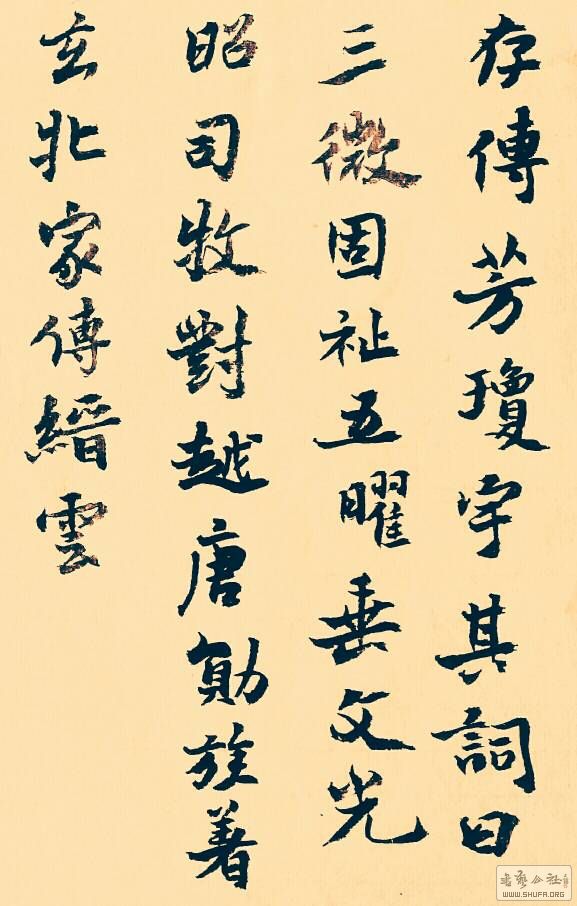 存傳芳瓊宇其詞曰
三微固祉五曜垂文光
昭司牧對越唐勛族著
玄北家傳縉雲
WWW.SHUFA.ORG